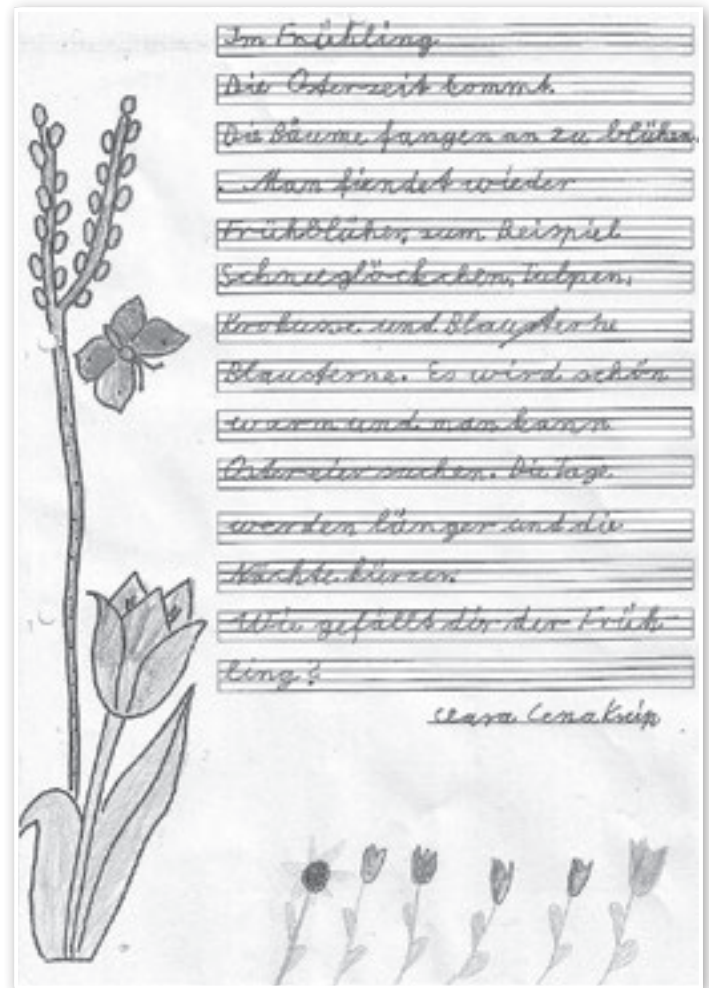 Im Frühling
Die Osterzeit kommt.
Die Bäume fangen an zu blühen
. Man fiendet wieder
Frühblüher, zum Beispiel
Schneeglöckchen, Tulpen,
Krokusse und Blausterne
Blausterne. Es wird schön
warm und man kann
Ostereier suchen. Die Tage
werden länger und die
Nächte kürzer.
Wie gefällt dir der Früh-
ling?
Clara